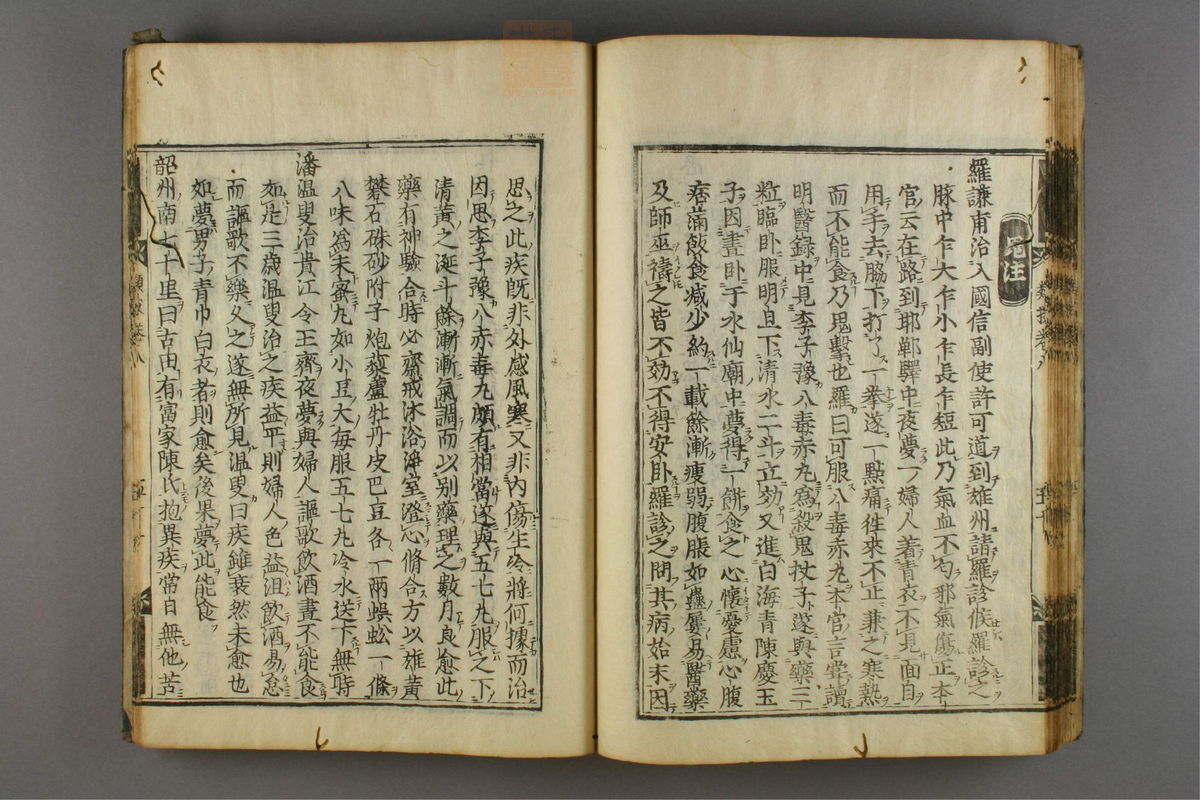 鬼注
羅謙甫治入國信副使許可道到雄州請羅診候羅診之
脉中乍大乍小乍長乍短此乃氣血不勻邪氣傷正本
官云在路到邯鄲驛中夜夢一婦人着青衣不見面目
用手去脇下打了一拳遂一點痛徃來不止兼之寒熱
而不能食乃鬼擊也羅曰可服八毒赤丸本官言甞讀
明醫錄中見李子豫八毒赤丸爲殺鬼杖子遂與藥三
粒臨卧服明旦下清水二斗立効又進白海青陳慶玉
子因晝卧于水仙廟中夢得一餅食之心懷憂慮心腹
痞滿飲食減少約一載餘漸瘦弱腹脹如蠱屢易醫藥
及師巫禱之皆不効不得安卧羅診之問其病始末因
思之此疾旣非外感風寒又非內傷生冷將何據而治
因思李子豫八赤毒丸頗有相當遂與五七丸服之下
清黃之涎斗餘漸漸氣調而以別藥理之數月良愈此
藥有神驗合時必齋戒沐浴淨室澄心脩合方以雄黃
礬石硃砂附子炮藜蘆牡丹皮巴豆各一兩蜈蚣一條
八味爲末蜜丸如小豆大每服五七丸冷水送下無時
潘温叟治貴江令王齊夜夢與婦人謳歌飲酒晝不能食
如是三歲温叟治之疾益平則婦人色益沮飲酒易怠
而謳歌不樂久之遂無所見温叟曰疾雖衰然未愈也
如夢男子青巾白衣者則愈矣後果夢此能食
韶州南七十里曰古田有富家陳氏抱異疾常日無他苦